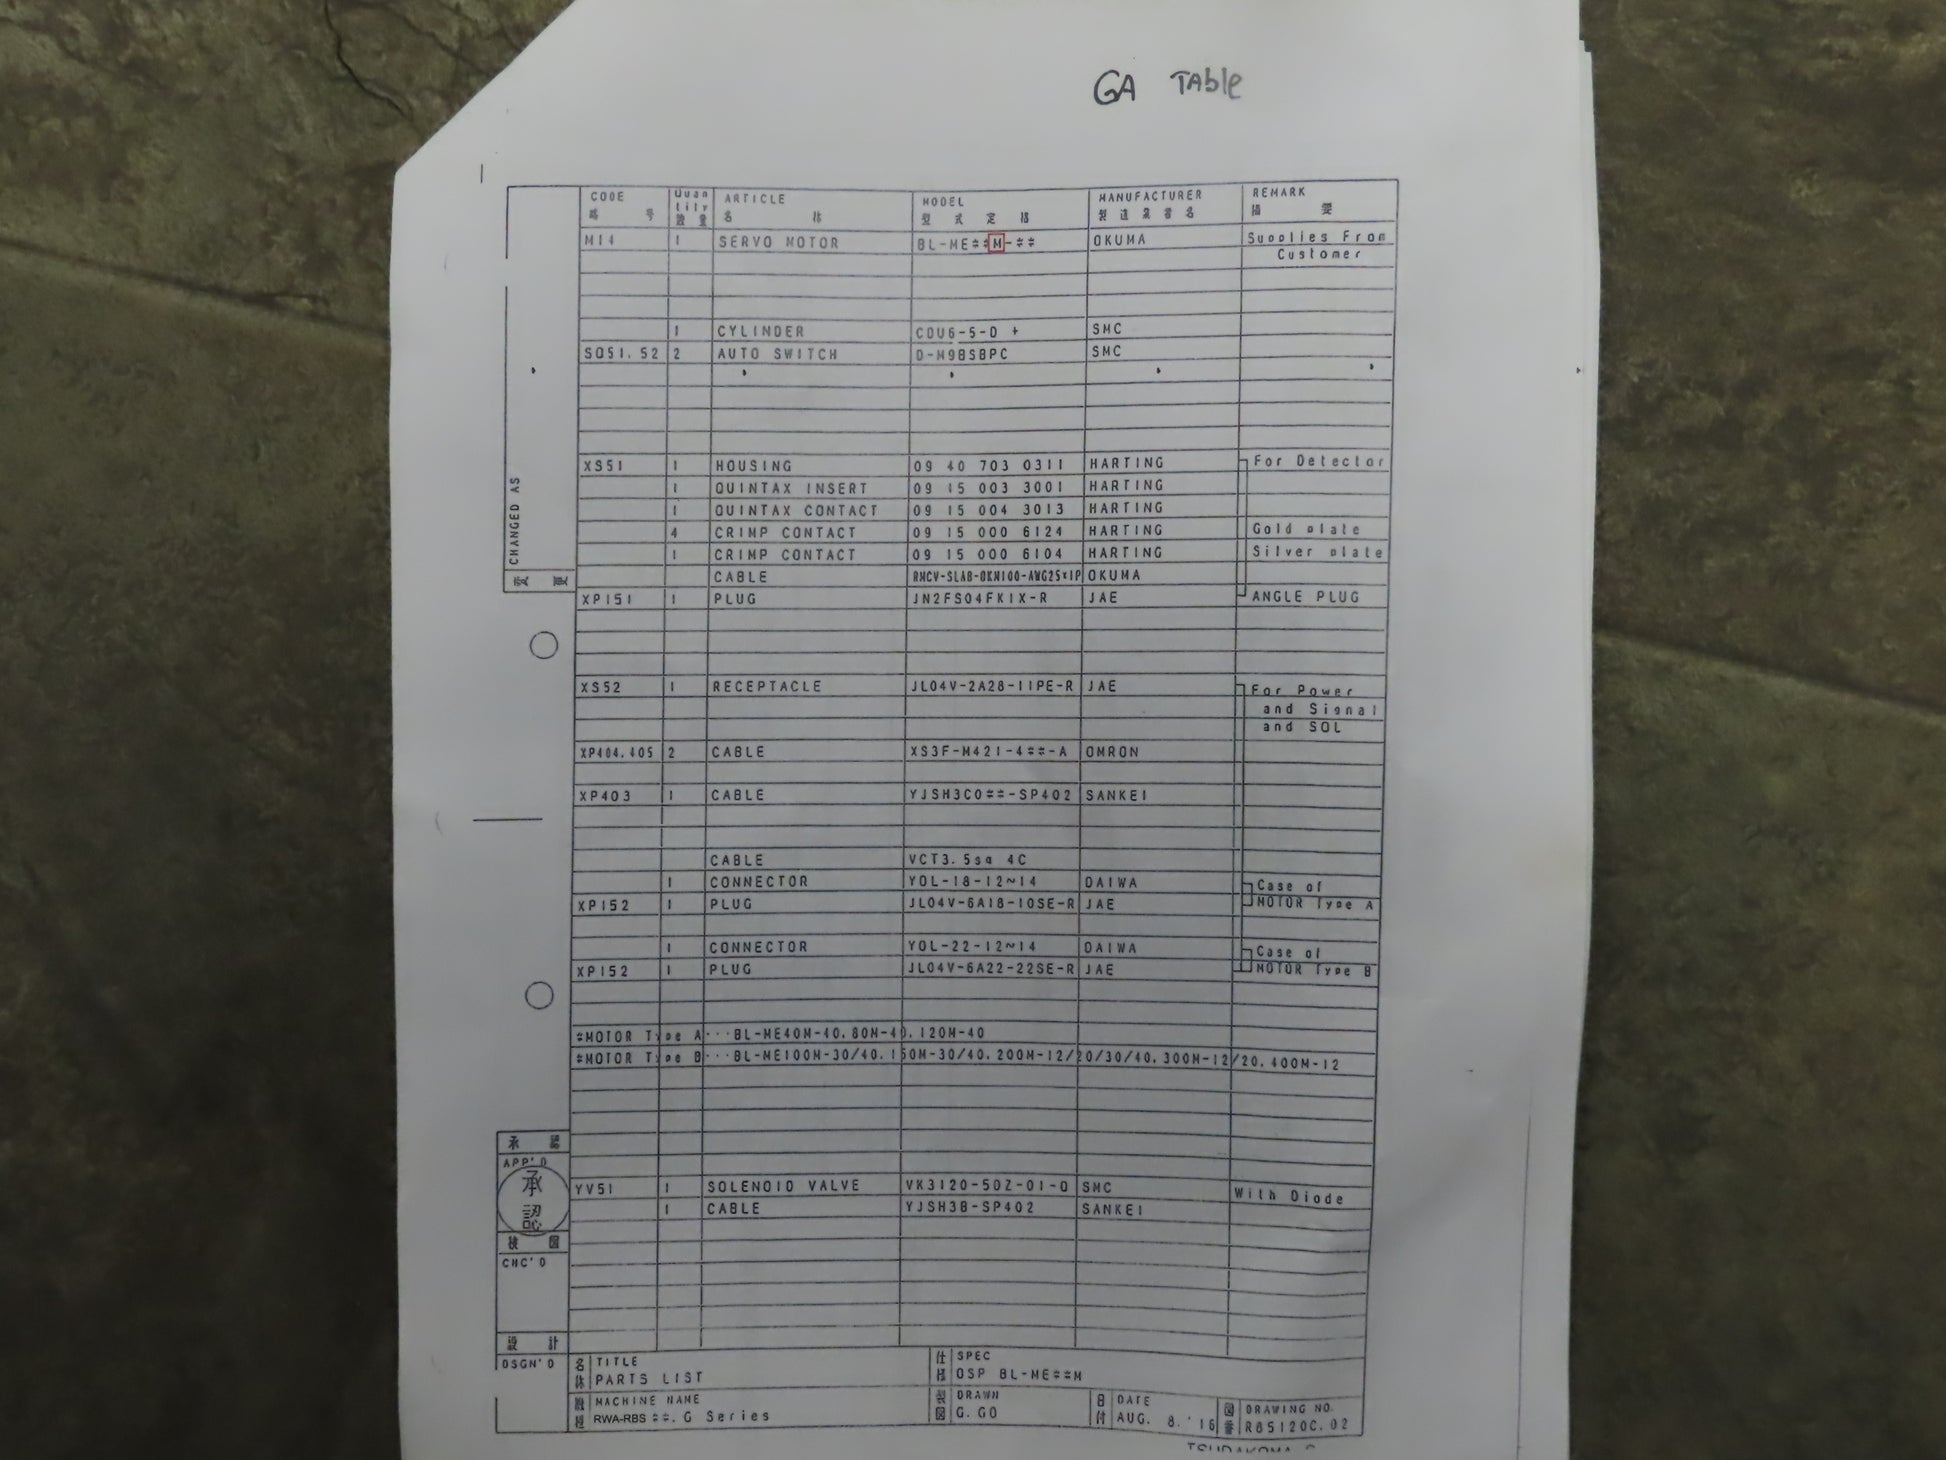 GA TAble
CODE Quan tity ARTICLE MODEL MANUFACTURER REMARK
略 号 数量 名 称 型 式 定 格 製 造 業 者 名 摘 要
M14 1 SERVO MOTOR BL-ME**M-** OKUMA Supplies From
Customer
1 CYLINDER CDU6-5-D + SMC
SQ51.52 2 AUTO SWITCH D-M9BSBPC SMC
XS51 1 HOUSING 09 40 703 0311 HARTING For Detector
1 QUINTAX INSERT 09 15 003 3001 HARTING
1 QUINTAX CONTACT 09 15 004 3013 HARTING
4 CRIMP CONTACT 09 15 000 6124 HARTING Gold plate
1 CRIMP CONTACT 09 15 000 6104 HARTING Silver plate
CHANGED AS
変 更
CABLE OKUMA
XP151 1 PLUG JN2FS04FK1X-R JAE ANGLE PLUG
XS52 1 RECEPTACLE JL04V-2A28-11PE-R JAE For Power
and Signal
and SOL
XP404.405 2 CABLE XS3F-M421-4**-A OMRON
XP403 1 CABLE YJSH3C0**-SP402 SANKEI
CABLE VCT3.5sq 4C
1 CONNECTOR YOL-18-12~14 DAIWA Case of
XP152 1 PLUG JL04V-6A18-10SE-R JAE MOTOR Type A
1 CONNECTOR YOL-22-12~14 DAIWA Case of
XP152 1 PLUG JL04V-6A22-22SE-R JAE MOTOR Type B
*MOTOR Type A···BL-ME40M-40.80M-40.120M-40
*MOTOR Type B···BL-ME100M-30/40.150M-30/40.200M-12/20/30/40.300M-12/20.400M-12
承 認
APP'D
承
認
YV51 1 SOLENOID VALVE VK3120-5DZ-01-Q SMC With Diode
1 CABLE YJSH3B-SP402 SANKEI
検 図
CHC'D
設 計
DSGN'D
名称 TITLE
PARTS LIST
仕様 SPEC
OSP BL-ME**M
機種 MACHINE NAME
RWA-RBS **. G Series
製図 DRAWN
G. GO
日付 DATE
AUG. 8.'16
図番 DRAWING NO.
R85120C.02